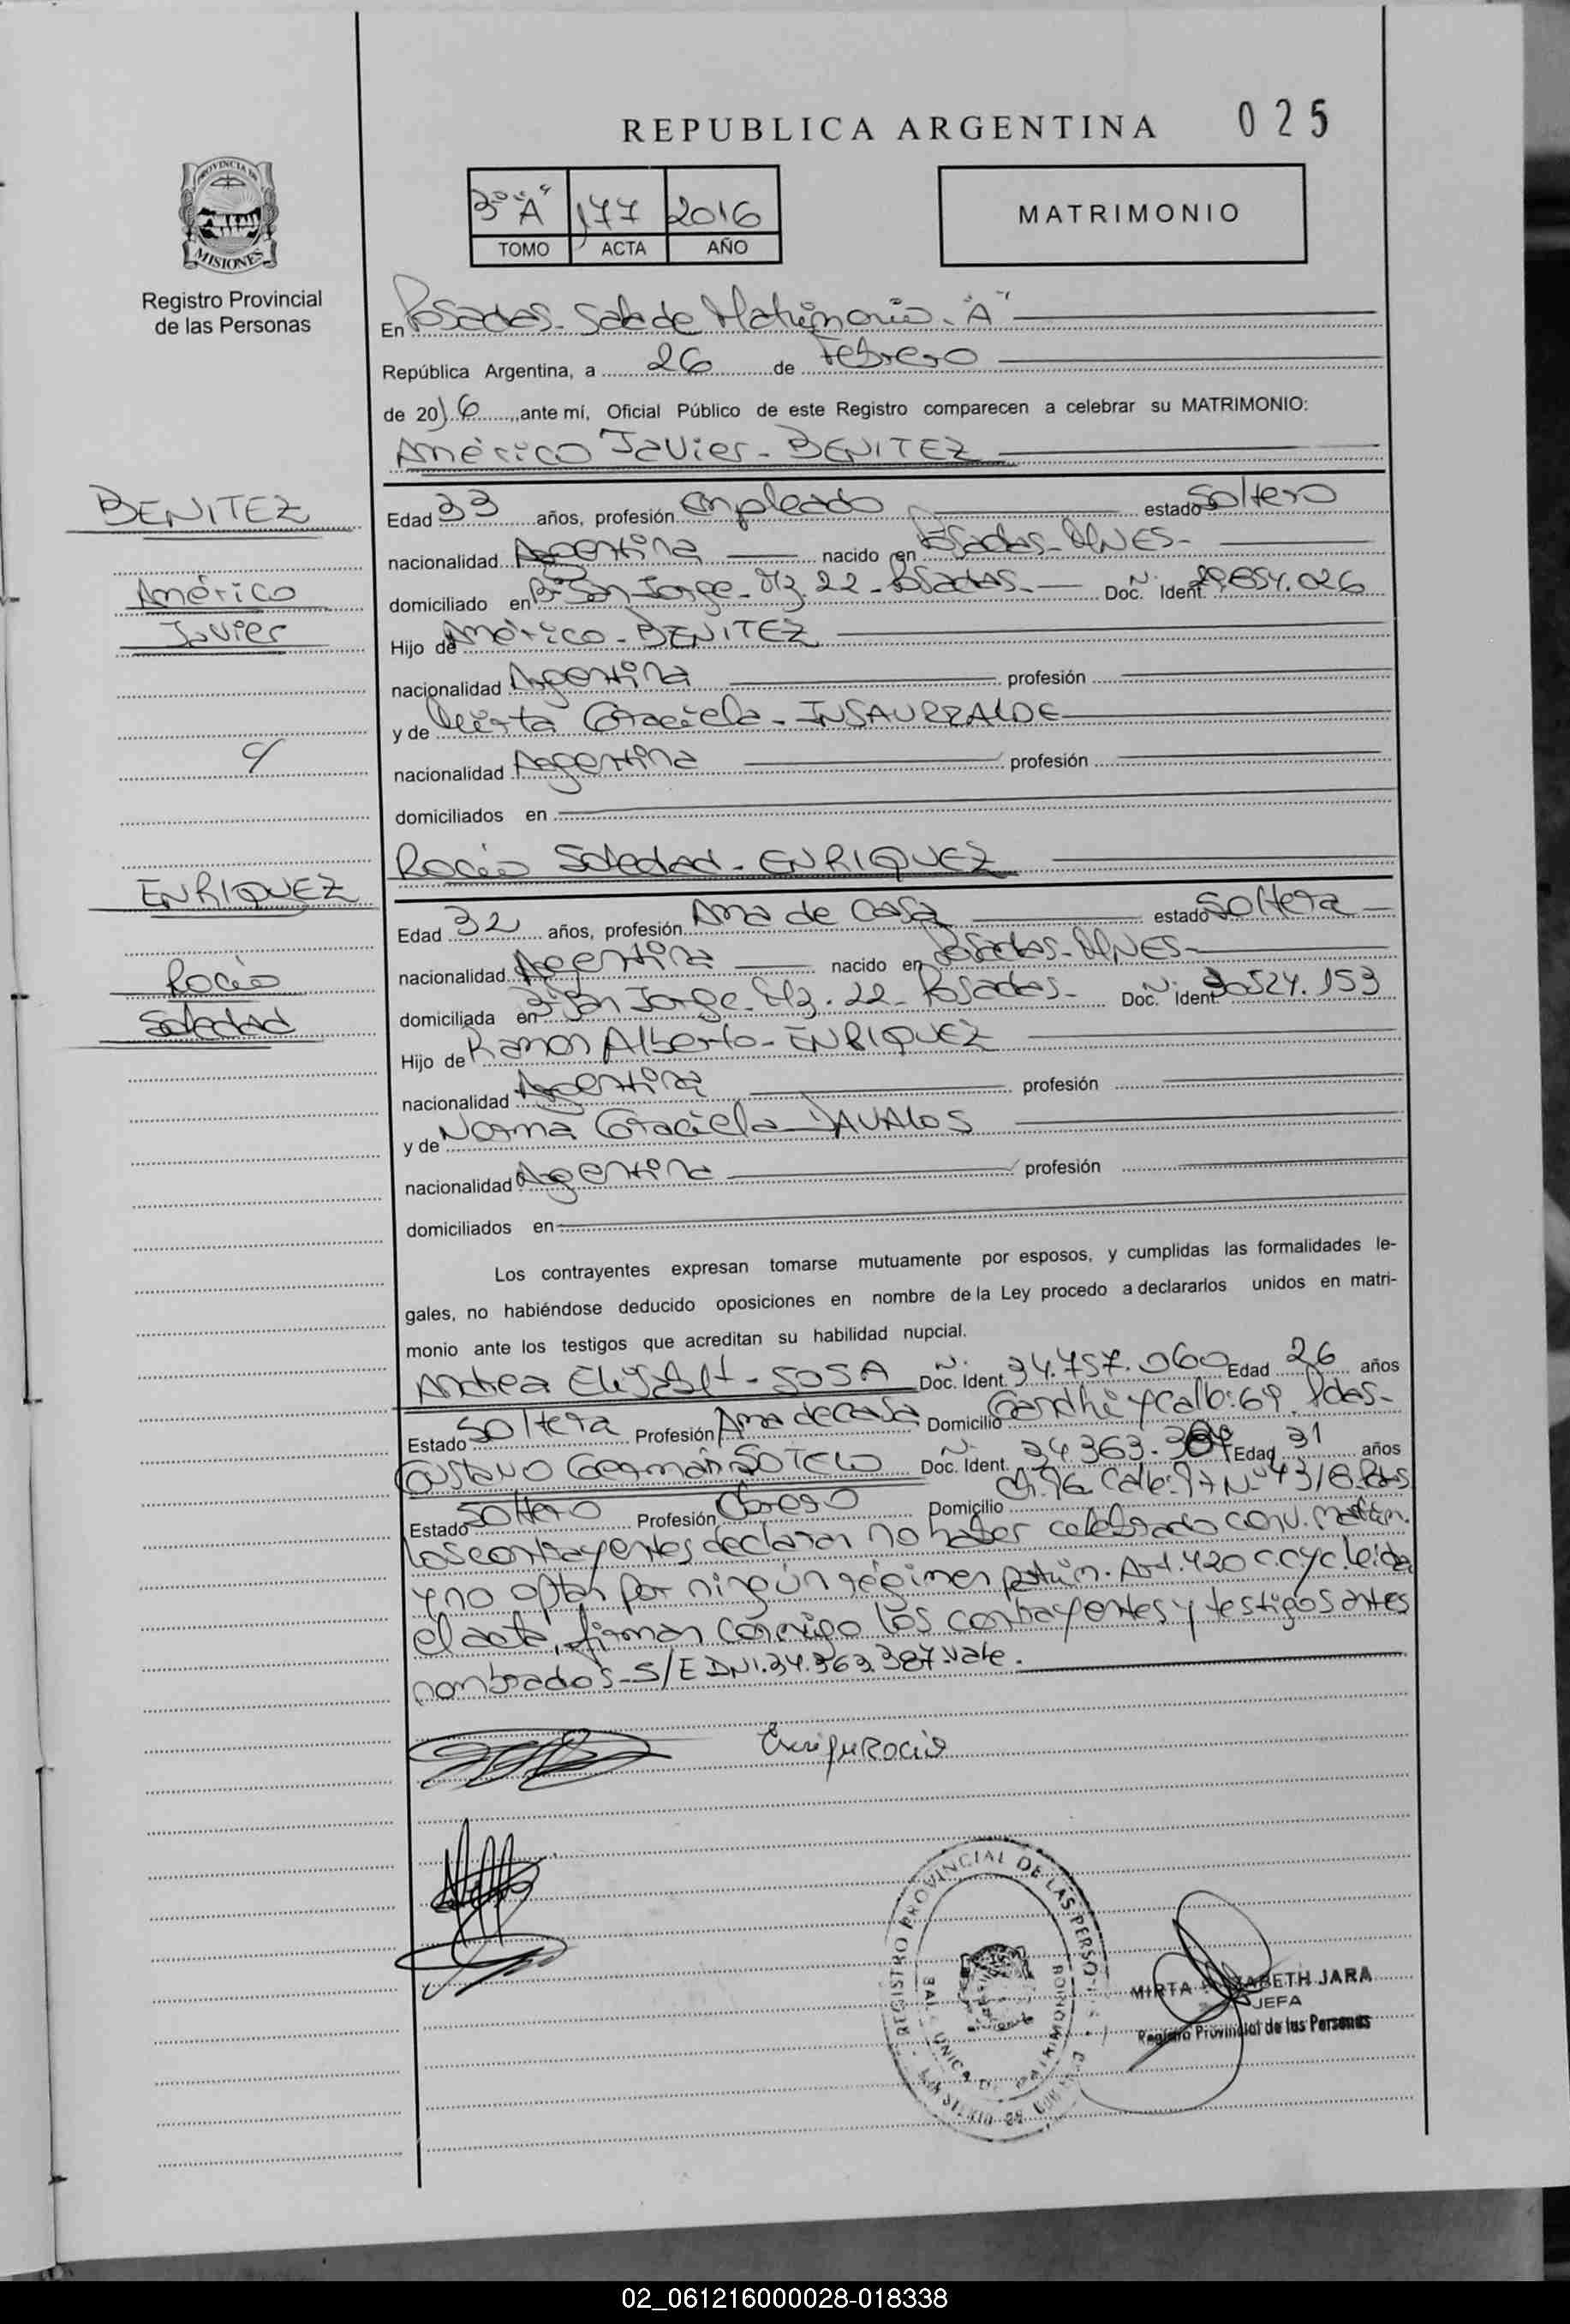 REPUBLICA ARGENTINA 025
PROVINCIA DE
MISIONES
Registro Provincial
de las Personas
3º "A" 177 2016
TOMO ACTA AÑO
MATRIMONIO
En Posadas - Sala de Matrimonio - "A"
República Argentina, a 26 de Febrero
de 2016, ante mí, Oficial Público de este Registro comparecen a celebrar su MATRIMONIO:
Américo Javier - BENITEZ
BENITEZ
Américo
Javier
c/
ENRIQUEZ
Rocío
Soledad
Edad 33 años, profesión Empleado estado Soltero
nacionalidad Argentina nacido en Posadas - MNES -
domiciliado en Bº San Jorge - Mz. 22 - Posadas - Doc. Nº Ident. 29.654.026
Hijo de Américo - BENITEZ
nacionalidad Argentina profesión
y de Mirta Graciela - INSAURRALDE
nacionalidad Argentina profesión
domiciliados en
Rocío Soledad - ENRIQUEZ
Edad 32 años, profesión Ama de Casa estado Soltera
nacionalidad Argentina nacido en Posadas - MNES -
domiciliada en Bº San Jorge - Mz. 22 - Posadas - Doc. Nº Ident. 30.524.153
Hijo de Ramon Alberto - ENRIQUEZ
nacionalidad Argentina profesión
y de Norma Graciela DAVALOS
nacionalidad Argentina profesión
domiciliados en
Los contrayentes expresan tomarse mutuamente por esposos, y cumplidas las formalidades le-
gales, no habiéndose deducido oposiciones en nombre de la Ley procedo a declararlos unidos en matri-
monio ante los testigos que acreditan su habilidad nupcial.
Andrea - SOSA Doc. Nº Ident. 34.757.060 Edad 26 años
Estado Soltera Profesión Ama de casa Domicilio Gandhi y Calle: 69. Pdas -
Gustavo Germán SOTELO Doc. Nº Ident. 34.363. Edad 31 años
Estado Soltero Profesión Obrero Domicilio Ch. Calle: 97 Nº
Los contrayentes declaran no haber celebrado conv. matrim.
y no optan por ningún régimen patrim. Art. 420 CCYC leida
el acta, firman conmigo los contrayentes y testigos antes
nombrados - S/E DNI. 34.363.387. Vale.
Rocio
REGISTRO PROVINCIAL DE LAS PERSONAS
UNICA DE MATRIMONIO
MIRTA ELIZABETH JARA
JEFA
Registro Provincial de las Personas
02_061216000028-018338